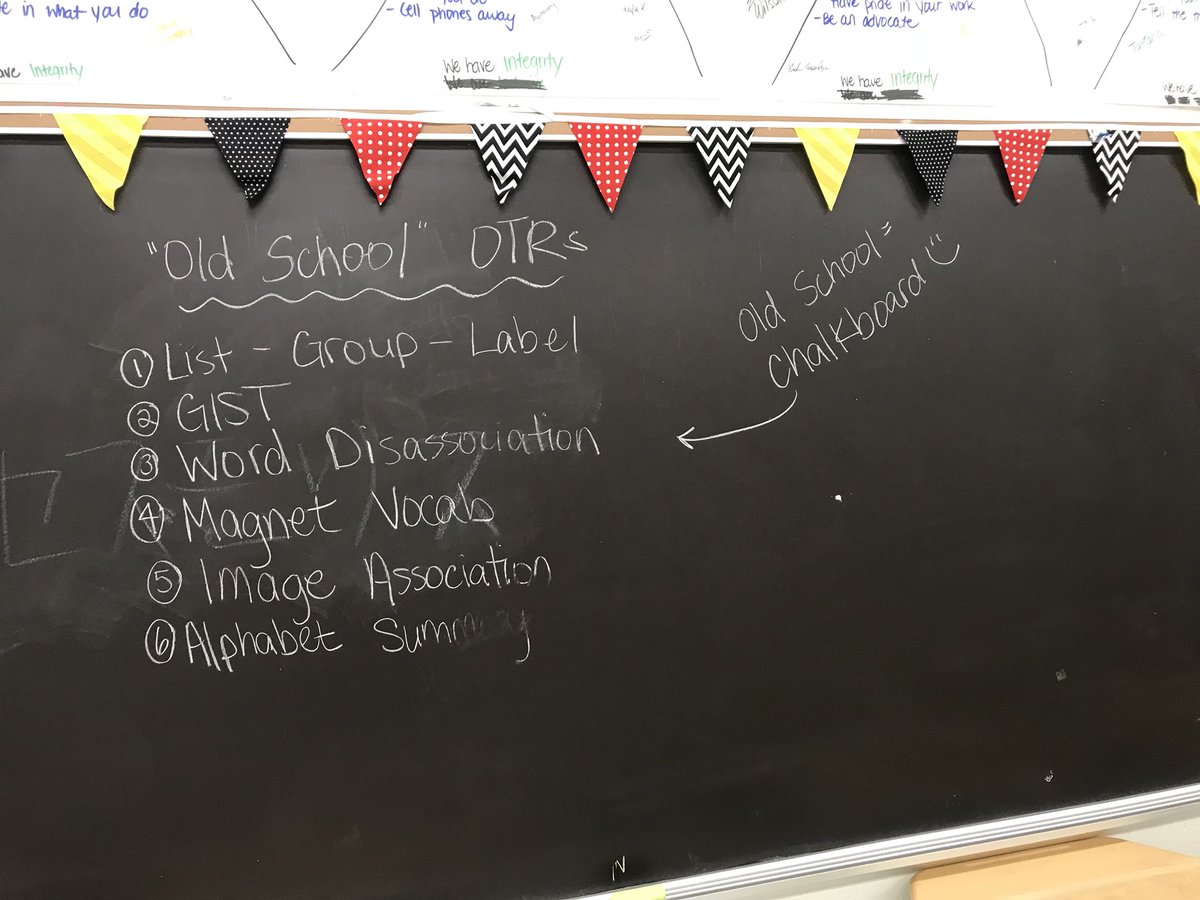 in what you do
- Cell phones away
Have pride in your work
- Be an advocate
- Tell the
Integrity
We have Integrity
We have Integrity
We have
"Old School" OTRs
① List - Group - Label
② GIST
③ Word Disassociation
④ Magnet Vocab
⑤ Image Association
⑥ Alphabet Summary
Old School =
Chalkboard
N